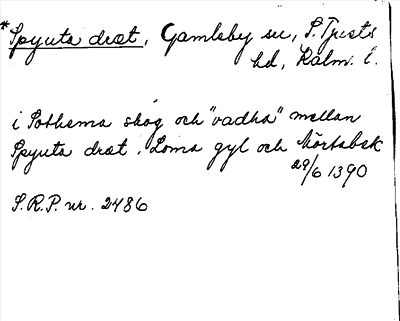 *Spyuta dræt, Gamleby sn, S. Tjusts
hd, Kalm. l.
i Sothema skog och "vadha" mellan
Spyuta dræt, Loma gyl och Mörtabek
29/6 1390
S.R.P. nr. 2486